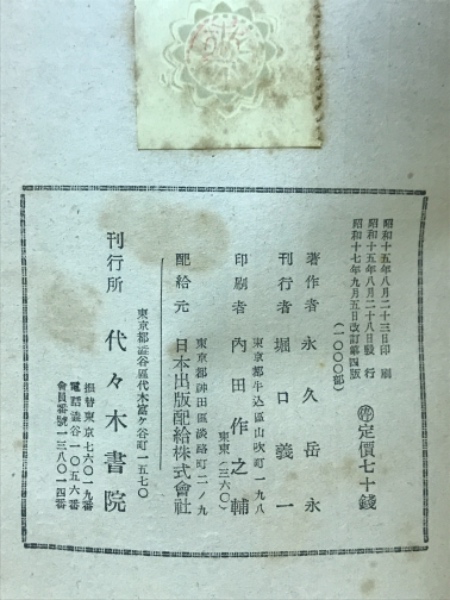 昭和十五年八月二十三日印刷
昭和十五年八月二十八日發行
昭和十七年九月五日改訂第四版
（一〇〇〇部）
停定價七十錢
著作者 永久岳永
刊行者 堀口義一
東京都牛込區山吹町一九八
印刷者 內田作之輔
東東（三六〇）
東京都神田區淡路町二ノ九
配給元 日本出版配給株式會社
東京都澁谷區代木富ヶ谷町一五七〇
刊行所 代々木書院
振替東京七六〇一九番
電話澁谷一〇五六番
會員番號一三八〇一四番